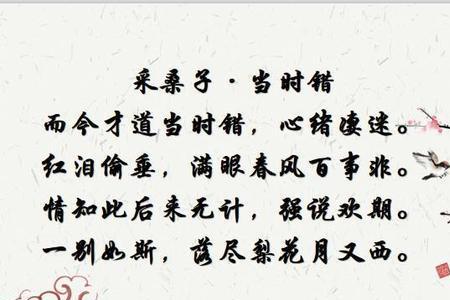 采桑子·当时错
而今才道当时错，心绪凄迷。
红泪偷垂，满眼春风百事非。
情知此后来无计，强说欢期。
一别如斯，落尽梨花月又西。